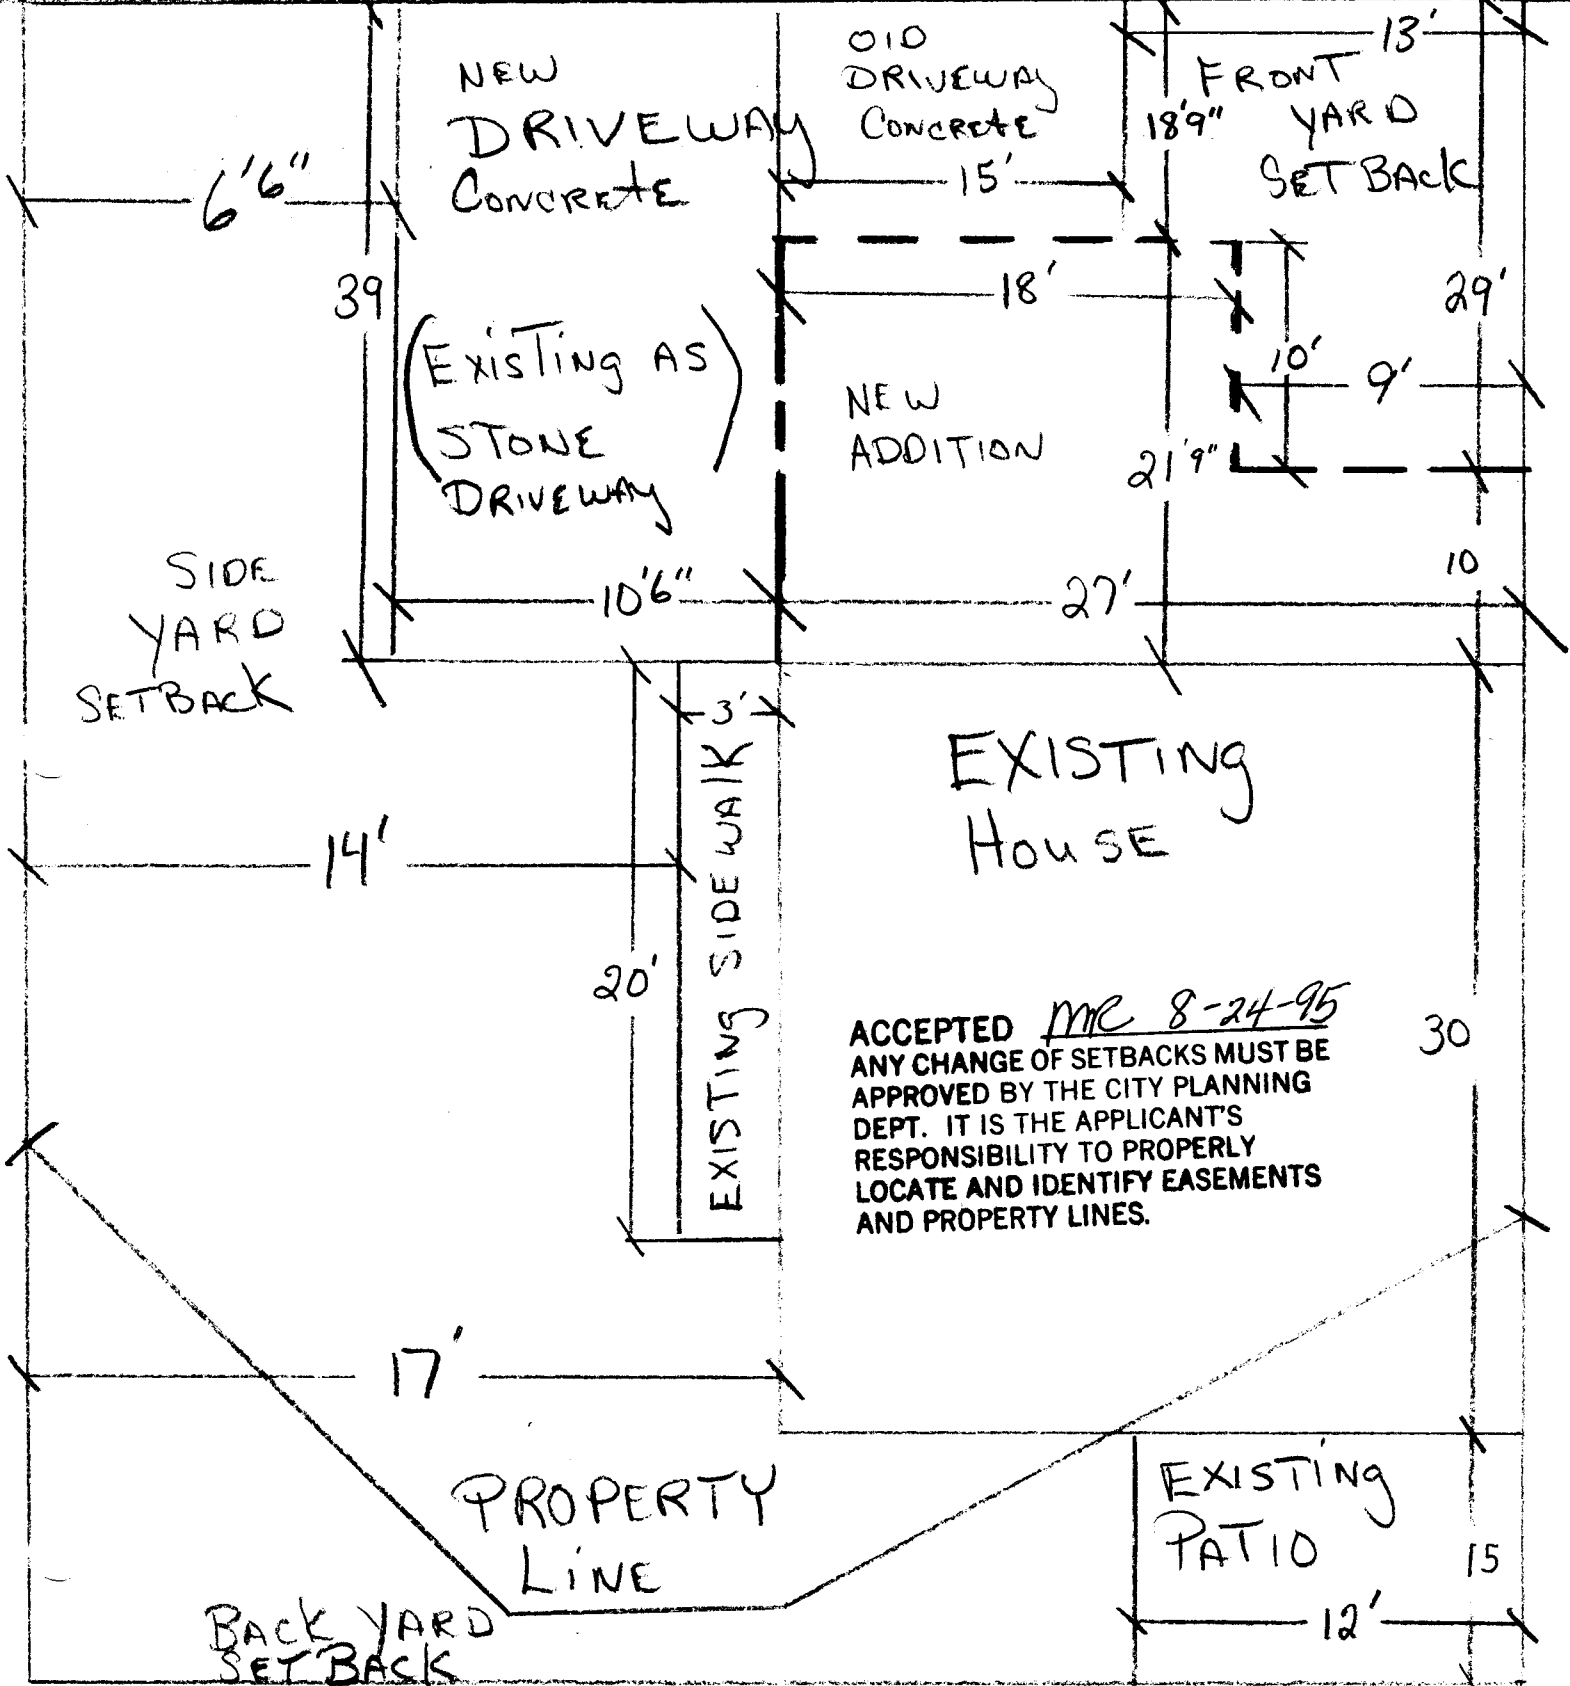 13'
OID
DRIVEWAY
CONCRETE
NEW
DRIVEWAY
CONCRETE
FRONT
YARD
SETBACK
18'9"
6'6"
15'
39
18'
29'
(EXISTING AS
STONE
DRIVEWAY)
10'
9'
NEW
ADDITION
21'9"
SIDE
YARD
SETBACK
10'6"
27'
10
3'
EXISTING SIDEWALK
EXISTING
HOUSE
14'
20'
ACCEPTED MR 8-24-95
ANY CHANGE OF SETBACKS MUST BE
APPROVED BY THE CITY PLANNING
DEPT. IT IS THE APPLICANT'S
RESPONSIBILITY TO PROPERLY
LOCATE AND IDENTIFY EASEMENTS
AND PROPERTY LINES.
30
17'
PROPERTY
LINE
EXISTING
PATIO
15
12'
BACK YARD
SETBACK